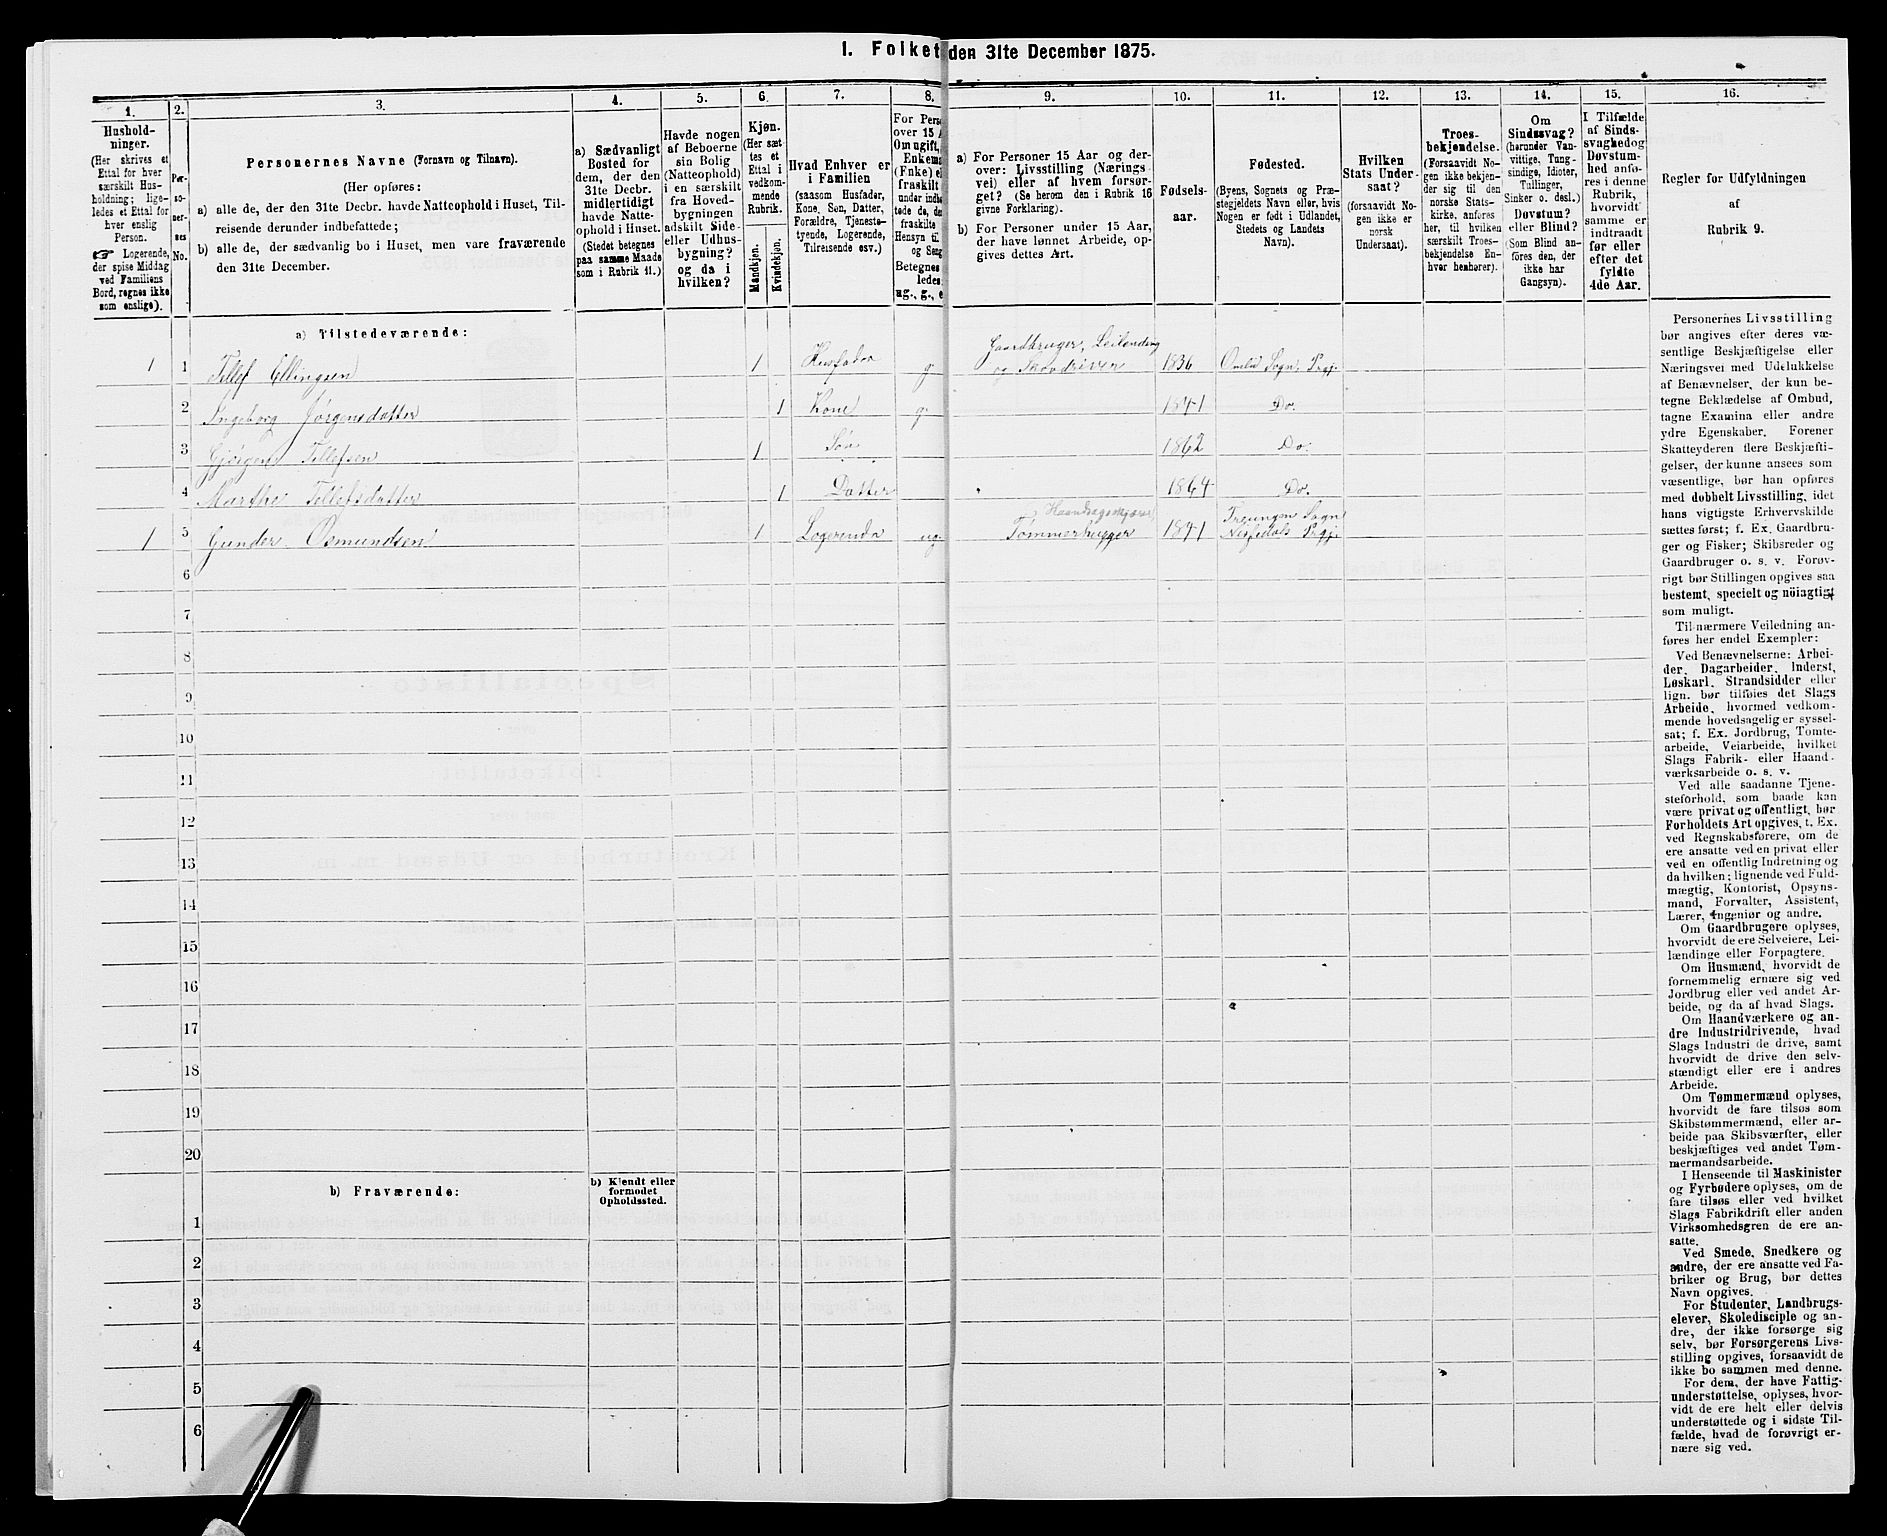 1. Folket den 31te December 1875.
1.
Hushold-
ninger.
(Her skrives et
Ettal for hver
særskilt Hus-
holdning; lige-
ledes et Ettal for
hver enslig
Person.
☞ Logerende,
der spise Middag
ved Familiens
Bord, regnes ikke
som enslige).
2.
Per-
so-
ner-
nes
No.
3.
Personernes Navne (Fornavn og Tilnavn).
(Her opføres:
a) alle de, der den 31te Decbr. havde Natteophold i Huset, Til-
reisende derunder indbefattede;
b) alle de, der sædvanlig bo i Huset, men vare fraværende
den 31te December.
4.
a) Sædvanligt
Bosted for
dem, der den
31te Decbr.
midlertidigt
havde Natte-
ophold i Huset.
(Stedet betegnes
paa samme Maade
som i Rubrik 11.)
5.
Havde nogen
af Beboerne
sin Bolig
(Natteophold)
i en særskilt
fra Hoved-
bygningen
adskilt Side-
eller Udhus-
bygning?
og da i
hvilken?
6.
Kjøn.
(Her sæt
tes et
Ettal i
vedkom-
mende
Rubrik.
Mandkjøn.
Kvindekjøn.
7.
Hvad Enhver er
i Familien
(saasom Husfader,
Kone, Søn, Datter,
Forældre, Tjeneste-
tyende, Logerende,
Tilreisende osv.)
8.
For Pers
over 15 A
Om ugift,
Enkema
(Enke) el
fraskilt
under indbe
tede de, de
fraskilte
Hensyn til
og Seng
Betegnes
ledes:
ug., g., e
9.
a) For Personer 15 Aar og der-
over: Livsstilling (Nærings
vei) eller af hvem forsør-
get? (Se herom den i Rubrik 16
givne Forklaring).
b) For Personer under 15 Aar,
der have lønnet Arbeide, op-
gives dettes Art.
10.
Fødsels-
aar.
11.
Fødested.
(Byens, Sognets og Præ-
stegjeldets Navn eller, hvis
Nogen er født i Udlandet,
Stedets og Landets
Navn).
12.
Hvilken
Stats Under-
saat?
(forsaavidt No-
gen ikke er
norsk
Undersaat).
13.
Troes-
bekjendelse.
(Forsaavidt No-
gen ikke bekjen-
der sig til den
norske Stats-
kirke, anføres
her, til hvilken
særskilt Troes-
bekjendelse En-
hver henhører).
14.
Om
Sindssvag?
(herunder Van-
vittige, Tung-
sindige, Idioter,
Tullinger,
Sinker o. desl.)
Døvstum?
eller Blind?
(Som Blind an-
føres den, der
ikke har
Gangsyn).
15.
I Tilfælde
af Sinds-
svaghed og
Døvstum-
hed anfø-
res i denne
Rubrik,
hvorvidt
samme er
indtraadt
før eller
efter det
fyldte
4de Aar.
16.
Regler for Udfyldningen
af
Rubrik 9.
a) Tilstedeværende:
1 1 Tellef Ellingsen 1 Husfader g. Gaardbruger, Leilending og Skovdriver 1836 Omlid Sogn. Prgj.
2 Ingeborg Jörgensdatter 1 Kone g. 1841 Do.
3 Gjörgen Tellefsen 1 Søn 1862 Do.
4 Marthe Tellefsdatter 1 Datter 1864 Do.
1 5 Gunder Osmundsen 1 Logerende ug. Tömmerhugger 1841 Treungen Sogn Nissedals Prgj.
6
7
8
9
10
11
12
13
14
15
16
17
18
19
20
b) Fraværende:
b) Kjendt eller
formodet
Opholdssted.
1
2
3
4
5
6
Personernes Livsstilling
bør angives efter deres væ-
sentlige Beskjæftigelse eller
Næringsvei med Udelukkelse
af Benævnelser, der kun be-
tegne Beklædelse af Ombud,
tagne Examina eller andre
ydre Egenskaber. Forener
Skatteyderen flere Beskjæfti-
gelser, der kunne ansees som
væsentlige, bør han opføres
med dobbelt Livsstilling, idet
hans vigtigste Erhvervskilde
sættes først; f. Ex. Gaardbru-
ger og Fisker; Skibsreder og
Gaardbruger o. s. v. Forøv-
rigt bør Stillingen opgives saa
bestemt, specielt og nöiagtigt
som muligt.
Til nærmere Veiledning an-
føres her endel Exempler:
Ved Benævnelserne: Arbei-
der, Dagarbeider, Inderst,
Løskarl, Strandsidder eller
lign. bør tilføies det Slags
Arbeide, hvormed vedkom-
mende hovedsagelig er syssel-
sat; f. Ex. Jordbrug, Tomte-
arbeide, Veiarbeide, hvilket
Slags Fabrik- eller Haand-
værksarbeide o. s. v.
Ved alle saadanne Tjene-
steforhold, som baade kan
være privat og offentligt, bør
Forholdets Art opgives, t. Ex.
ved Regnskabsførere, om de
ere ansatte ved en privat eller
ved en offentlig Indretning og
da hvilken; lignende ved Fuld-
mægtig, Kontorist, Opsyns-
mand, Forvalter, Assistent,
Lærer, Ingeniør og andre.
Om Gaardbrugere oplyses,
hvorvidt de ere Selveiere, Lei-
lændinge eller Forpagtere.
Om Husmænd, hvorvidt de
fornemmelig ernære sig ved
Jordbrug eller ved andet Ar-
beide, og da af hvad Slags.
Om Haandværkere og an-
dre Industridrivende, hvad
Slags Industri de drive, samt
hvorvidt de drive den selv-
stændigt eller ere i andres
Arbeide.
Om Tømmermænd oplyses,
hvorvidt de fare tilsøs som
Skibstømmermænd, eller ar-
beide paa Skibsværfter, eller
beskjæftiges ved andet Tøm-
mermandsarbeide.
I Henseende til Maskinister
og Fyrbødere oplyses, om de
fare tilsøs eller ved hvilket
Slags Fabrikdrift eller anden
Virksomhedsgren de ere an-
satte.
Ved Smede, Snedkere og
andre, der ere ansatte ved Fa-
briker og Brug, bør dettes
Navn opgives.
For Studenter, Landbrugs-
elever, Skoledisciple og an-
dre, der ikke forsørge sig
selv, bør Forsørgerens Livs-
stilling opgives, forsaavidt de
ikke bo sammen med denne.
For dem, der have Fattig-
understøttelse, oplyses, hvor-
vidt de ere helt eller delvis
understøttede og i sidste Til-
fælde, hvad de forøvrigt er-
nære sig ved.